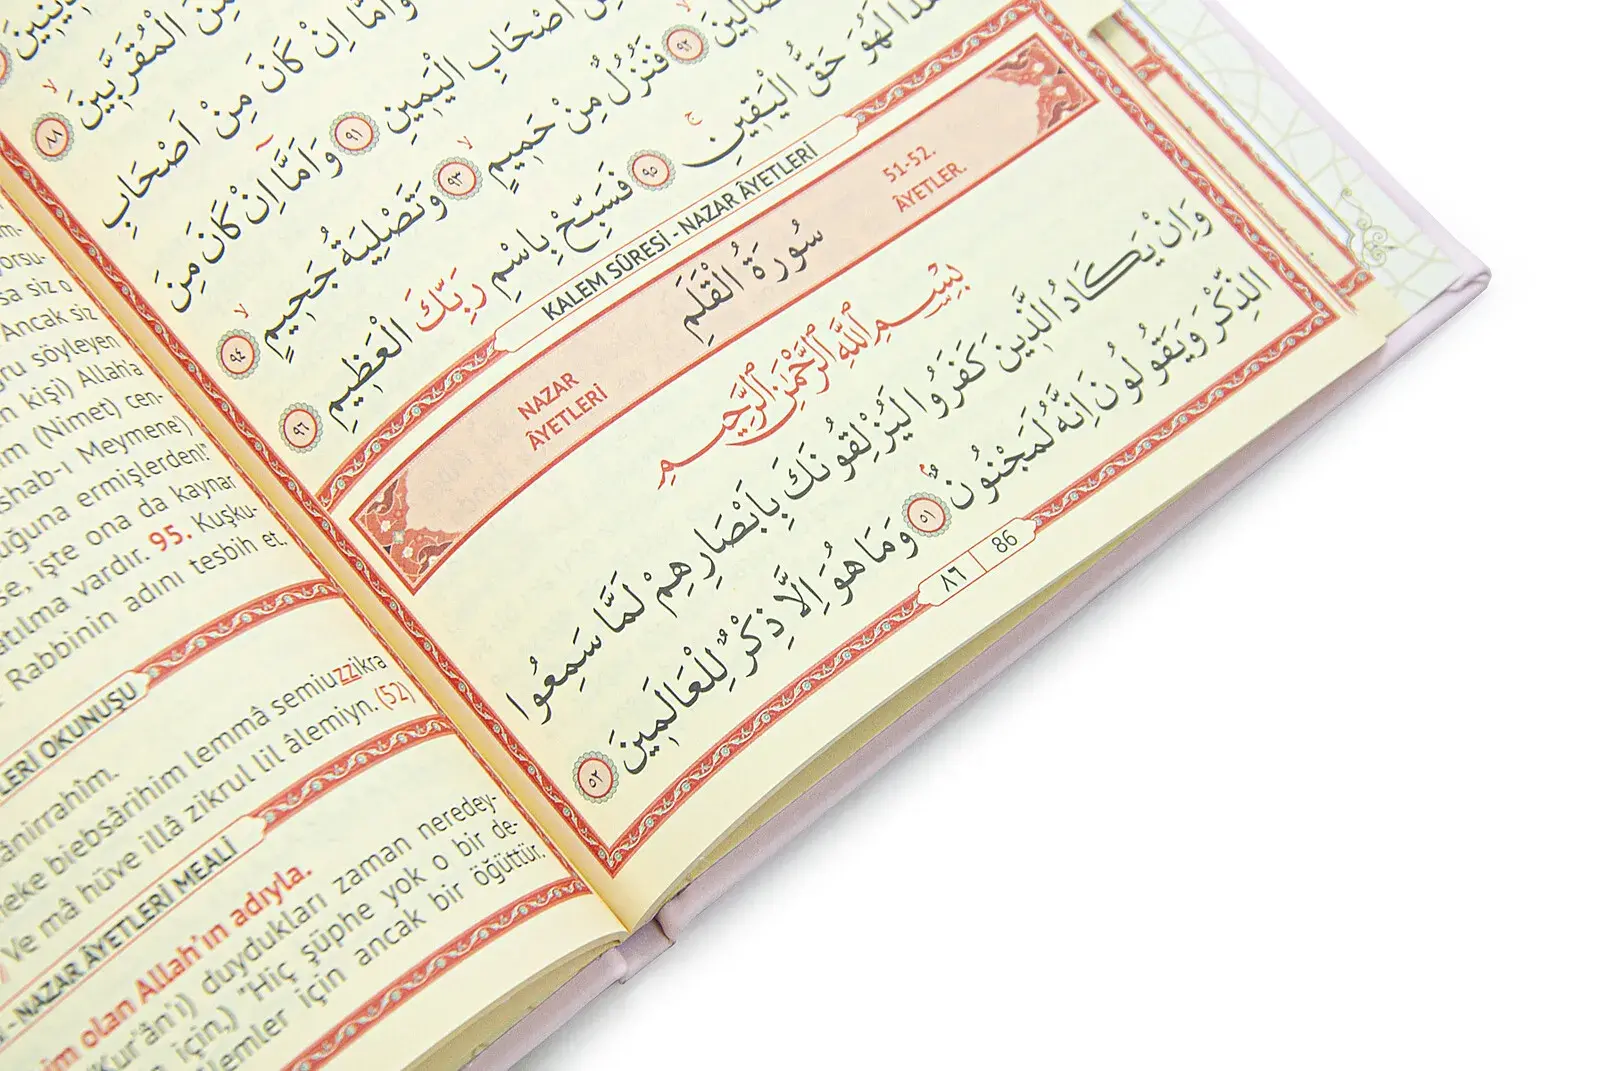 الْمُقَرَّبِينَ ٨٨
وَاَمَّا اِنْ كَانَ مِنْ اَصْحَابِ
اَصْحَابِ الْيَمِينِ ٩١ وَاَمَّا اِنْ كَانَ مِنَ
٩٢ فَنُزُلٌ مِنْ حَمِيمٍ ٩٣ وَتَصْلِيَةُ جَحِيمٍ ٩٤
لَهُوَ حَقُّ الْيَقِينِ ٩٥ فَسَبِّحْ بِاسْمِ رَبِّكَ الْعَظِيمِ ٩٦
KALEM SÛRESİ - NAZAR ÂYETLERİ
51-52. ÂYETLER.
سُورَةُ الْقَلَمِ
NAZAR ÂYETLERİ
بِسْمِ اللّٰهِ الرَّحْمٰنِ الرَّحِيمِ
وَاِنْ يَكَادُ الَّذِينَ كَفَرُوا لَيُزْلِقُونَكَ بِاَبْصَارِهِمْ لَمَّا سَمِعُوا
الذِّكْرَ وَيَقُولُونَ اِنَّهُ لَمَجْنُونٌ ٥١ وَمَا هُوَ اِلَّا ذِكْرٌ لِلْعَالَمِينَ ٥٢
٨٦ 86
siz o
Ancak siz
söyleyen
kişi) Allah'a
(Nimet) cen-
Meymene)
ermişlerden!"
işte ona da kaynar
vardır. 95. Kuşku-
Rabbinin adını tesbih et.
OKUNUŞU
biebsârihim lemmâ semiuzzikra
Ve mâ hüve illâ zikrul lil âlemiyn. (52)
- NAZAR ÂYETLERİ MEALİ
olan Allah'ın adıyla.
duydukları zaman neredey-
için,) "Hiç şüphe yok o bir de-
için ancak bir öğüttür.